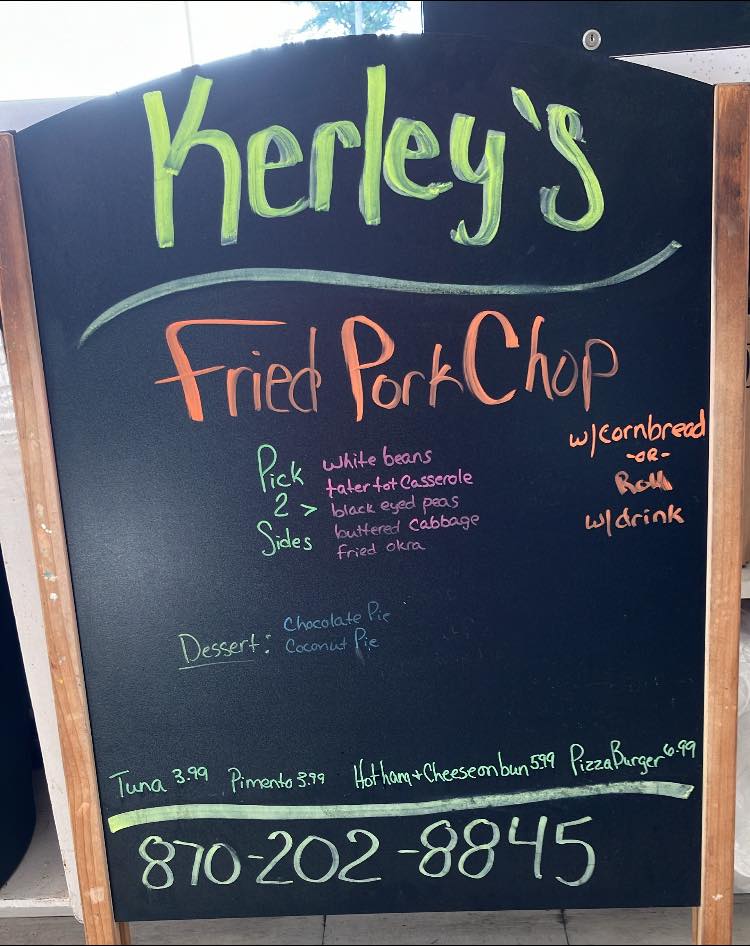 Kerley's
Fried Pork Chop
w/cornbread
-OR-
Roll
w/drink
Pick
2 >
Sides
white beans
tater tot Casserole
black eyed peas
buttered cabbage
fried okra
Dessert:
Chocolate Pie
Coconut Pie
Tuna 3.99 Pimento 3.99 Hot ham + Cheese on bun 5.99 Pizza Burger 6.99
870-202-8845